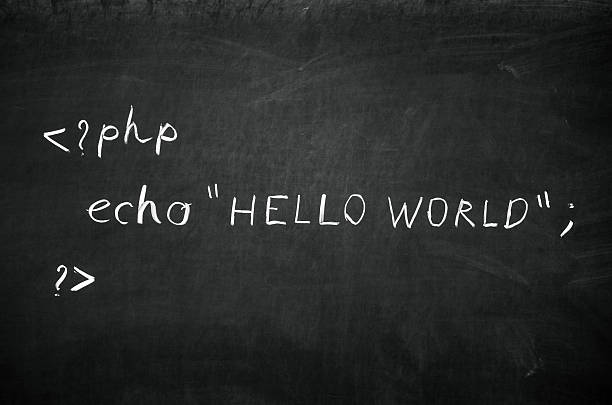 <?php
echo "HELLO WORLD";
?>